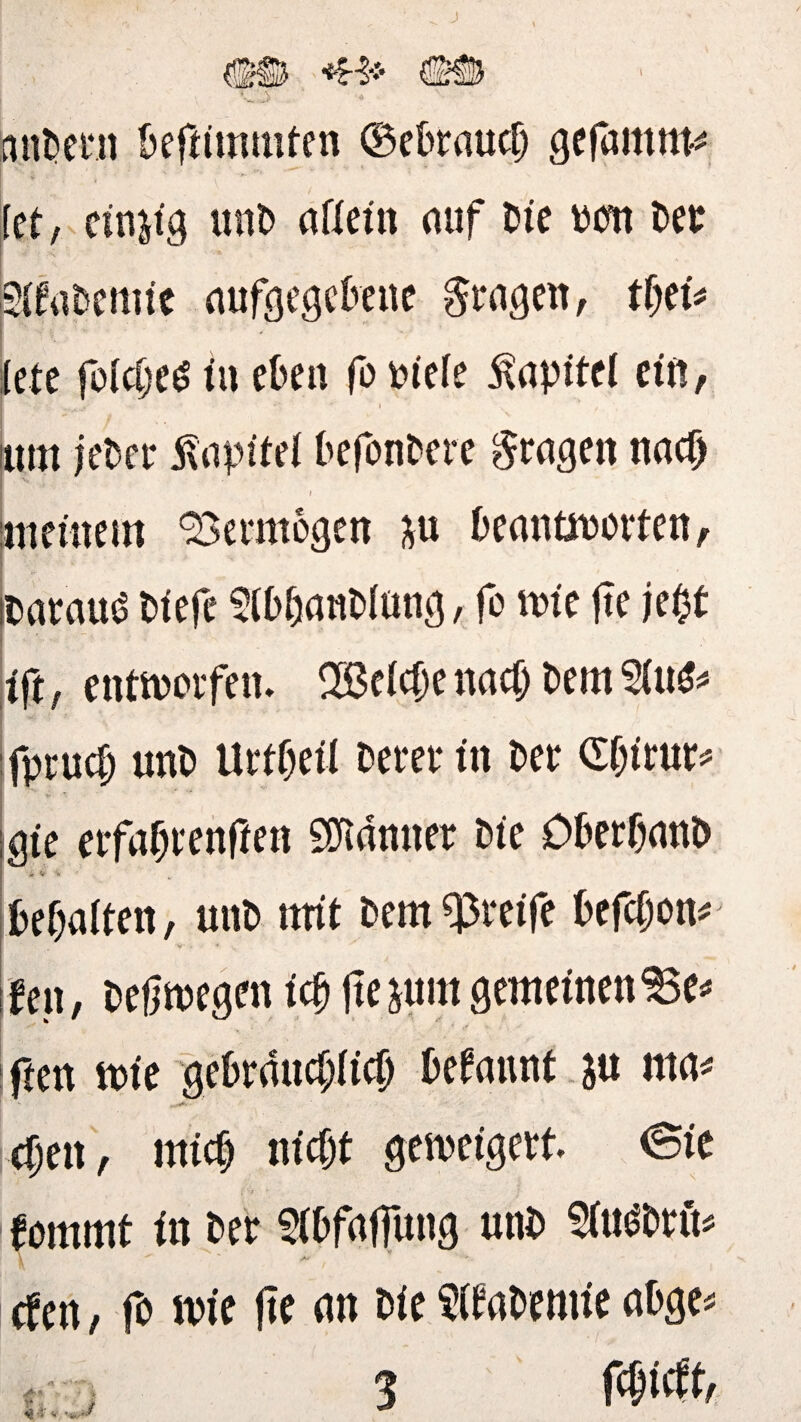 andern bestimmten Gebrauch gesamm⸗
let, einzig und allein auf die von der
Akademie aufgegebene Fragen, thei⸗
lete solches in eben so viele Kapitel ein,
um jeder Kapitel besondere Fragen nach
meinem Vermögen zu beantworten,
daraus diese Abhandlung, so wie sie jetzt
ist, entworfen. Welche nach dem Aus⸗
spruch und Urtheil derer in der Chirur⸗
gie erfahrensten Männer die Oberhand
behalten, und mit dem Preise beschon⸗
ken, deßwegen ich sie zum gemeinen Be⸗
sten wie gebräuchlich bekannt zu ma⸗
chen, mich nicht geweigert. Sie
kommt in der Abfassung und Ausdrü⸗
cken, so wie sie an die Akademie abge⸗
3 schickt,